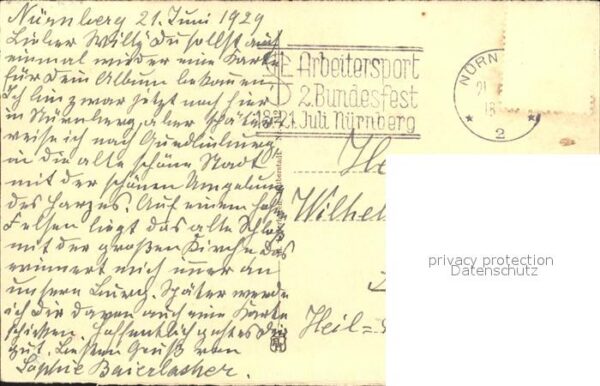 Nürnberg 21. Juni 1929
Lieber Willy! Du sollst auch
einmal wieder eine Karte
für Dein Album bekommen.
Ich bin zwar jetzt noch hier
in Nürnberg, aber später
reise ich nach Quedlinburg
in die alte schöne Stadt
mit der schönen Umgebung
des Harzes. Auf einem hohen
Felsen liegt das alte Schloß
mit der großen Kirche das
erinnert mich immer an
unsere Burg. Später werde
ich Dir davon auch eine Karte
schicken. Hoffentlich geht es Dir
gut. Besten Gruß von
Sophie Baierlacher.
Arbeitersport
2. Bundesfest
18.-21. Juli Nürnberg
NÜRN
21.
18
* 2 *
He
Wilhel
Heil=
privacy protection
Datenschutz